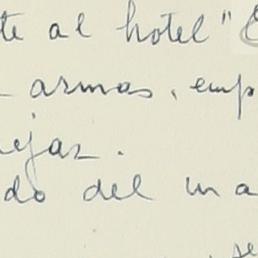 te al hotel "
armas, emp
ejaz.
do del ma
se